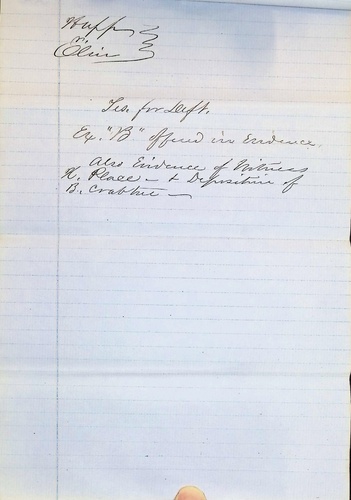 Hupp
vs
Olin
Tes. for Deft.
Ex. "B" offered in Evidence.
Also Evidence of Witness
K. Place — & Deposition of
B. Crabtree —